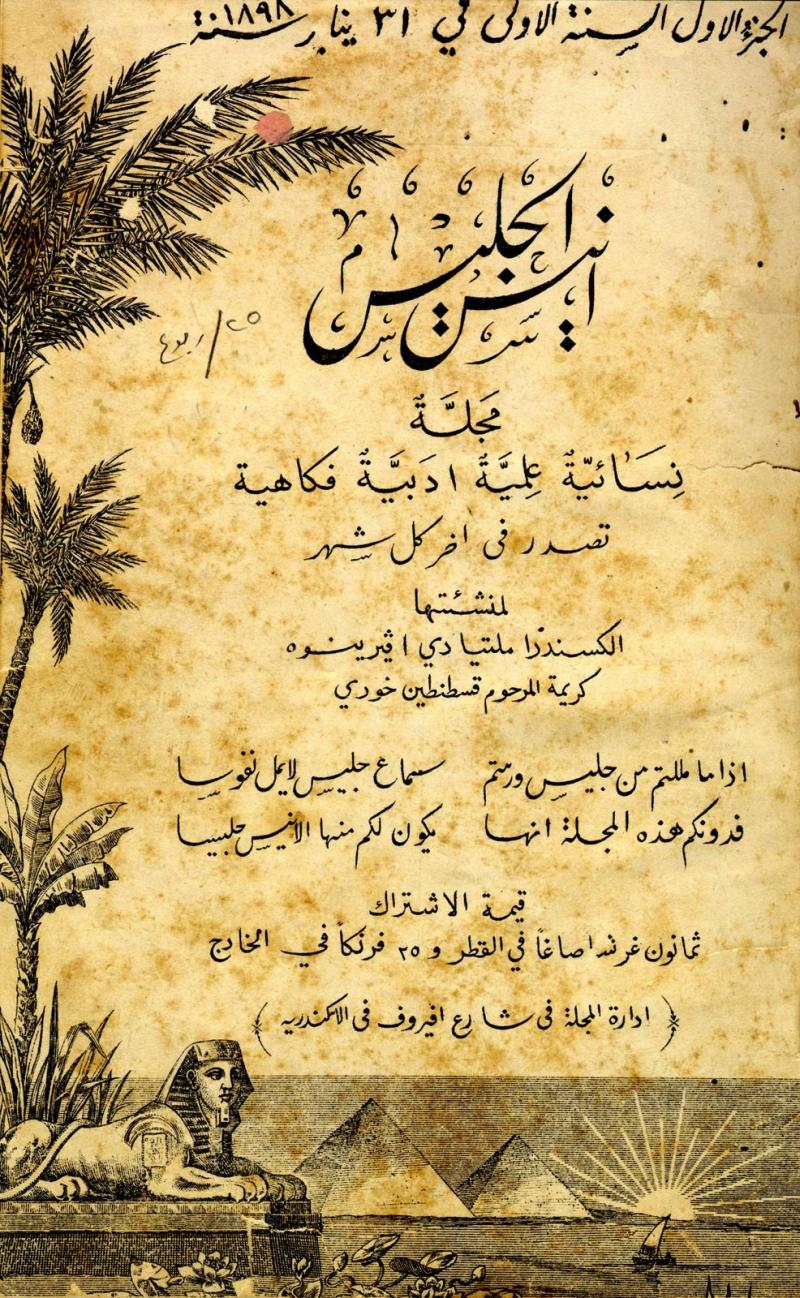 الجزء الاول السنة الاولى في ٣١ يناير سنة ١٨٩٨
انيس الجليس
مَجَلَّةٌ
نِسَائيَّةٌ عِلميَّةٌ ادَبيَّةٌ فكاهية
تصدر في اخر كل شهر
لمنشئتها
الكسندرا ملتيادي افيرينوه
كريمة المرحوم قسطنطين خوري
اذا ما مللتم من جليس ورمتم سماع جليس لا يمل نفوسا
فدونكم هذه المجلة انها يكون لكم منها الانيس جليسا
قيمة الاشتراك
ثمانون غرشا صاغاً في القطر و ٢٥ فرنكاً في الخارج
(ادارة المجلة في شارع افيروف في الاسكندريه)